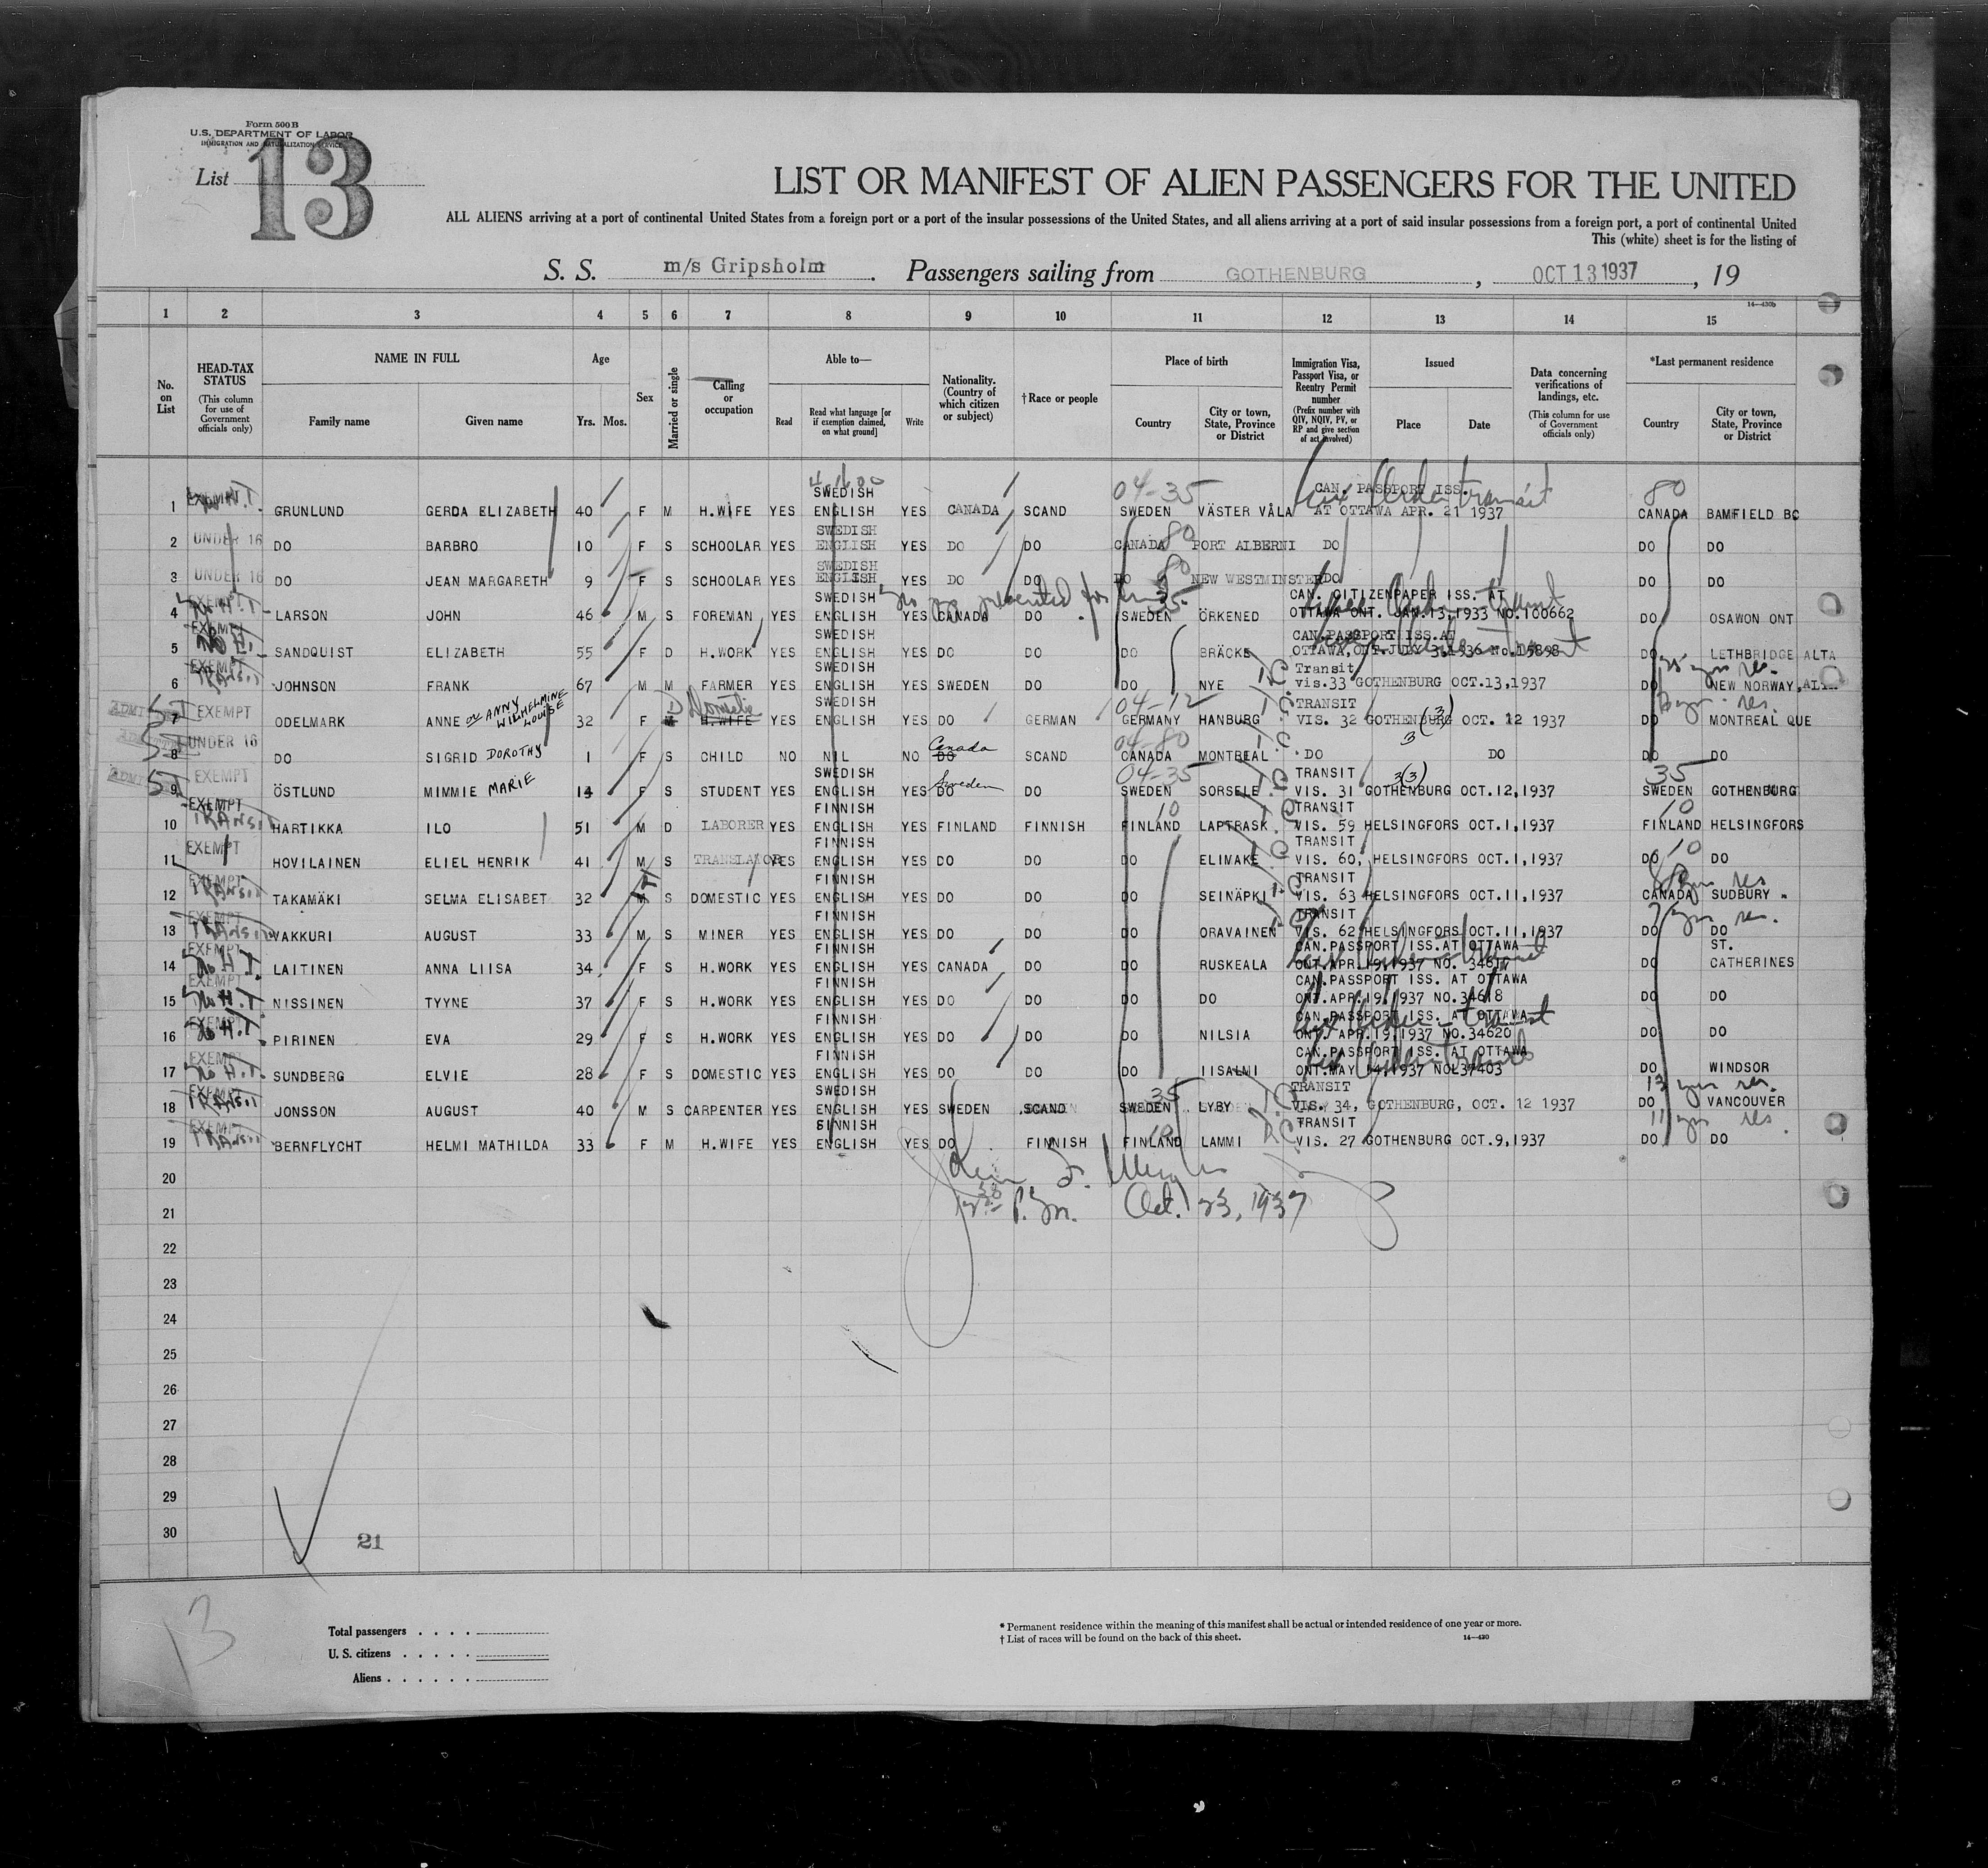 Form 500 B
U.S. DEPARTMENT OF LABOR
IMMIGRATION AND NATURALIZATION SERVICE
List 13
LIST OR MANIFEST OF ALIEN PASSENGERS FOR THE UNITED
ALL ALIENS arriving at a port of continental United States from a foreign port or a port of the insular possessions of the United States, and all aliens arriving at a port of said insular possessions from a foreign port, a port of continental United
This (white) sheet is for the listing of
S. S. m/s Gripsholm. Passengers sailing from GOTHENBURG, OCT 13 1937, 19
14—430b
1 2 3 4 5 6 7 8 9 10 11 12 13 14 15
No. on List
HEAD-TAX STATUS
(This column for use of Government officials only)
NAME IN FULL
Family name
Given name
Age
Yrs. Mos.
Sex
Married or single
Calling or occupation
Able to—
Read
Read what language [or if exemption claimed, on what ground]
Write
Nationality. (Country of which citizen or subject)
†Race or people
Place of birth
Country
City or town, State, Province or District
Immigration Visa, Passport Visa, or Reentry Permit number
(Prefix number with QIV, NQIV, PV, or RP and give section of act involved)
Issued
Place
Date
Data concerning verifications of landings, etc.
(This column for use of Government officials only)
*Last permanent residence
Country
City or town, State, Province or District
1 GRUNLUND GERDA ELIZABETH 40 F M H.WIFE YES SWEDISH ENGLISH YES CANADA SCAND 04-35 SWEDEN VÄSTER VÅLA CAN. PASSPORT ISS. AT OTTAWA APR. 21 1937 80 CANADA BAMFIELD BC
2 UNDER 16 DO BARBRO 10 F S SCHOOLAR YES SWEDISH ENGLISH YES DO DO CANADA 80 PORT ALBERNI DO DO DO
3 UNDER 16 DO JEAN MARGARETH 9 F S SCHOOLAR YES SWEDISH ENGLISH YES DO DO DO 80 NEW WESTMINSTER DO DO DO
4 EXEMPT No H.T. LARSON JOHN 46 M S FOREMAN YES SWEDISH ENGLISH YES CANADA DO SWEDEN 35 ÖRKENED CAN. CITIZENPAPER ISS. AT OTTAWA ONT. JAN.13,1933 NO.100662 DO OSAWON ONT
5 EXEMPT SANDQUIST ELIZABETH 55 F D H.WORK YES SWEDISH ENGLISH YES DO DO DO BRÄCKE CAN.PASSPORT ISS.AT OTTAWA,ONT.JULY 3,1936 No.15898 DO LETHBRIDGE ALTA
6 EXEMPT TRANSIT JOHNSON FRANK 67 M M FARMER YES SWEDISH ENGLISH YES SWEDEN DO DO NYE Transit vis.33 GOTHENBURG OCT.13,1937 DO NEW NORWAY,
7 EXEMPT ODELMARK ANNE or ANNY WILHELMINE LOUISE 32 F M D H.WIFE Domestic YES SWEDISH ENGLISH YES DO GERMAN 04-12 GERMANY HANBURG TRANSIT VIS. 32 GOTHENBURG (3) OCT. 12 1937 DO MONTREAL QUE
8 UNDER 16 DO SIGRID DOROTHY 1 F S CHILD NO NIL NO DO Canada SCAND 04-80 CANADA MONTREAL DO 3 DO DO DO
9 EXEMPT ÖSTLUND MIMMIE MARIE 14 F S STUDENT YES SWEDISH ENGLISH YES DO Sweden DO 04-35 SWEDEN SORSELE TRANSIT VIS. 31 GOTHENBURG OCT.12,1937 35 SWEDEN GOTHENBURG
10 EXEMPT TRANSIT HARTIKKA ILO 51 M D LABORER YES FINNISH ENGLISH YES FINLAND FINNISH 10 FINLAND LAPTRASK TRANSIT VIS. 59 HELSINGFORS OCT.1,1937 10 FINLAND HELSINGFORS
11 EXEMPT HOVILAINEN ELIEL HENRIK 41 M S TRANSLATOR YES FINNISH ENGLISH YES DO DO DO ELIMAKE TRANSIT VIS. 60, HELSINGFORS OCT.1,1937 DO 10 DO
12 EXEMPT TRANSIT TAKAMÄKI SELMA ELISABET 32 S DOMESTIC YES FINNISH ENGLISH YES DO DO DO SEINÄPKI TRANSIT VIS. 63 HELSINGFORS OCT.11,1937 CANADA SUDBURY
13 EXEMPT TRANSIT VAKKURI AUGUST 33 M S MINER YES FINNISH ENGLISH YES DO DO DO ORAVAINEN TRANSIT VIS. 62 HELSINGFORS OCT.11,1937 DO DO
14 EXEMPT No H T. LAITINEN ANNA LIISA 34 F S H.WORK YES FINNISH ENGLISH YES CANADA DO DO RUSKEALA CAN.PASSPORT ISS.AT OTTAWA ONT.APR.19,1937 NO. DO ST. CATHERINES
15 EXEMPT No H.T NISSINEN TYYNE 37 F S H.WORK YES FINNISH ENGLISH YES DO DO DO DO CAN.PASSPORT ISS. AT OTTAWA ONT.APR.19,1937 NO.34618 DO DO
16 EXEMPT No H.T. PIRINEN EVA 29 F S H.WORK YES FINNISH ENGLISH YES DO DO DO NILSIA CAN.PASSPORT ISS. AT OTTAWA ONT. APR.19,1937 NO.34620 DO DO
17 EXEMPT No H.T. SUNDBERG ELVIE 28 F S DOMESTIC YES FINNISH ENGLISH YES DO DO DO IISALMI CAN.PASSPORT ISS. AT OTTAWA ONT.MAY 14,1937 NOL37403 DO WINDSOR
18 EXEMPT TRANSIT JONSSON AUGUST 40 M S CARPENTER YES SWEDISH ENGLISH YES SWEDEN SCAND 35 SWEDEN LYBY TRANSIT VIS. 34, GOTHENBURG, OCT. 12 1937 12 yrs res. DO VANCOUVER
19 EXEMPT TRANSIT BERNFLYCHT HELMI MATHILDA 33 F M H.WIFE YES FINNISH ENGLISH YES DO FINNISH 10 FINLAND LAMMI TRANSIT VIS. 27 GOTHENBURG OCT.9,1937 11 yrs res. DO DO
20
21 P.M. Oct. 23, 1937
22
23
24
25
26
27
28
29
30
21
13
Total passengers
U. S. citizens
Aliens
* Permanent residence within the meaning of this manifest shall be actual or intended residence of one year or more.
† List of races will be found on the back of this sheet.
14—430